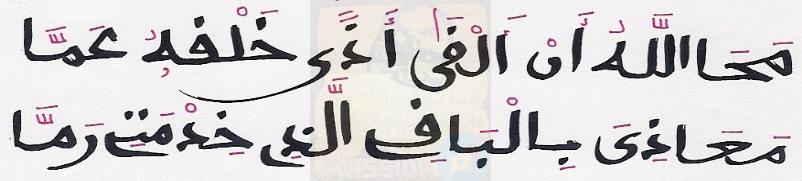 مَحَا اللَّهُ أَنْ أَلْفَى أَذًى خَلْفَهُ عَمَّا
مَعَاذِىَ بِالْبَاقِ الَّذِى خِدْمَتِى رَمَّا